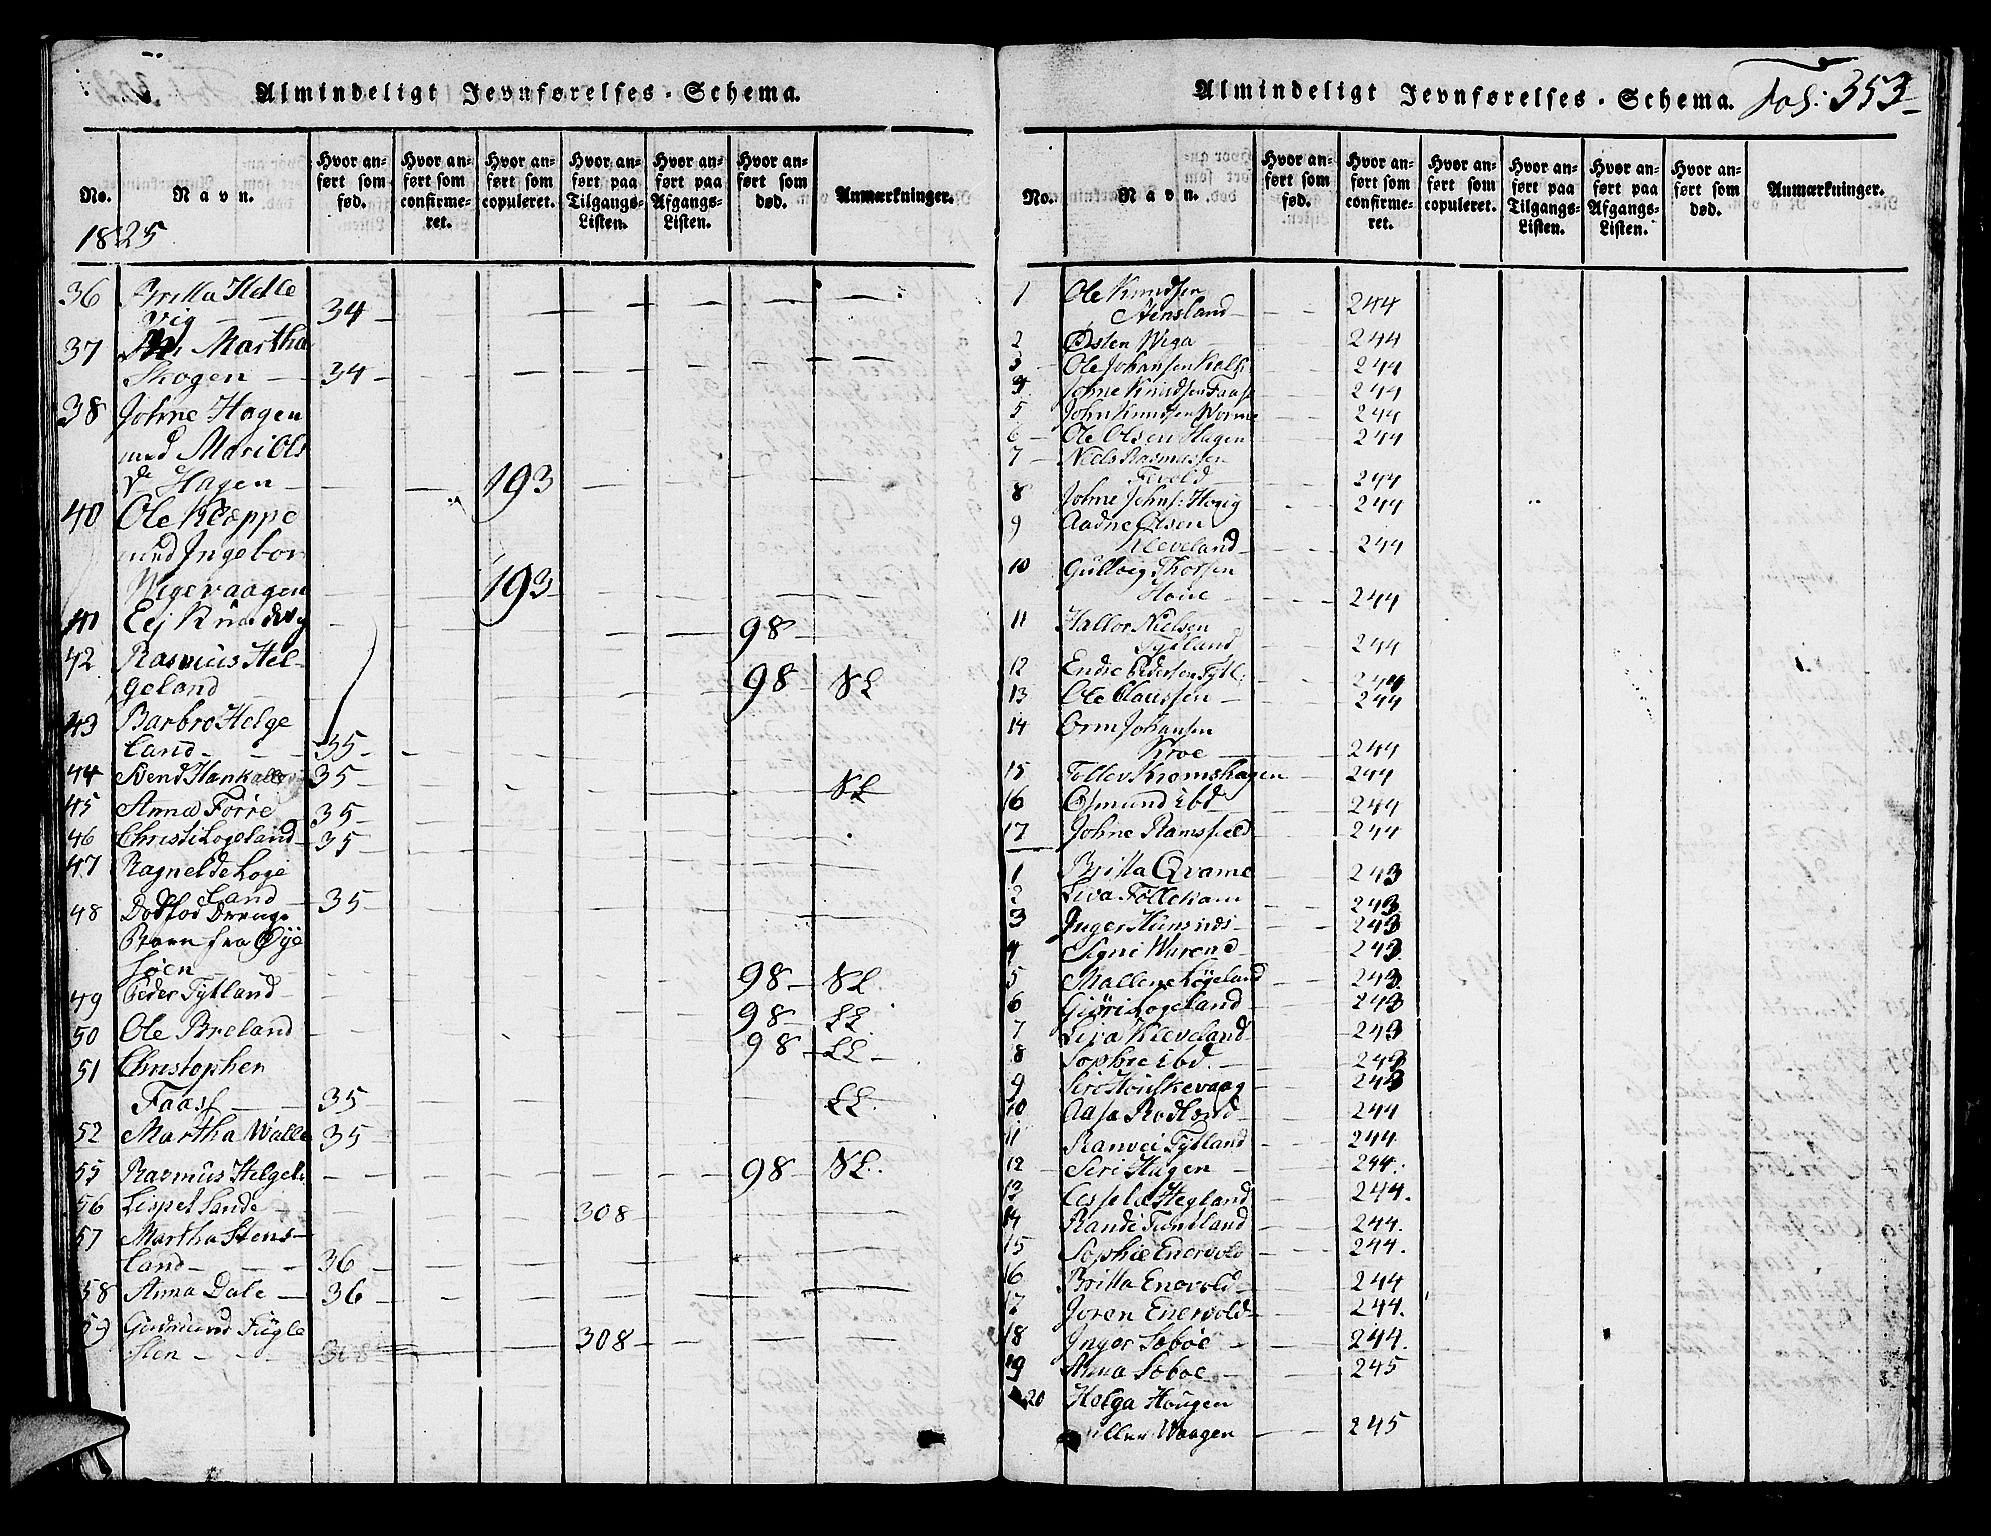 Almindeligt Jevnførelses-Schema.
No. Navn. Hvor anført som fød. Hvor anført som confirmeret. Hvor anført som copuleret. Hvor anført paa Tilgangs-Listen. Hvor anført paa Afgangs-Listen. Hvor anført som død. Anmærkninger.
1825
36 Britta Helle
vig 34
37 Martha
Skogen 34
38 Johne Hagen
med Mari Ols
dr Hagen 193
40 Ole Kleppe
med Ingebor
Wigevaagen 193
41 Eej Knudsvig 98
42 Rasmus Hel-
geland 98 SL
43 Barbro Helge
land 35
44 Svend Hankalle 35 SL
45 Anna Førre 35
46 Christi Logeland 35
47 Ragnelde Loge
land 35
48 Dødfød Drenge
Barn fra Øye
søen 98 SL.
49 Peder Tytland 98 LL.
50 Ole Breland 98 LL
51 Christopher
Faass 35 LL.
52 Martha Walle 35
55 Rasmus Helgel. 98 SL.
56 Lispet Sande 308
57 Martha Stens-
land 36
58 Anna Dale 36
59 Gudmund Fugle
sten 308 308
Almindeligt Jevnførelses-Schema. Fol: 353
No. Navn. Hvor anført som fød. Hvor anført som confirmeret. Hvor anført som copuleret. Hvor anført paa Tilgangs-Listen. Hvor anført paa Afgangs-Listen. Hvor anført som død. Anmærkninger.
1 Ole Knudsen
Stensland 244
2 Østen Wiga 244
3 Ole Johansen 244
4 Johne Knudsen Faass 244
5 John Knudsen Worme 244
6 Ole Olsen Hagen 244
7 Niels Rasmussen
Tevold 244
8 Johne Johns: Hovig 244
9 Aadne Olsen
Kleveland 244
10 Gulleig Thorsen
Houe 244
11 Hallor Nielsen
Tytland 244
12 Endre Pedersen Tytl: 244
13 Ole Claussen 244
14 Orm Johansen
Kroe 244
15 Tollev Kromshagen 244
16 Osmund Ebd 244
17 Johne Ramsfield 244
1 Britta Qvame 243
2 Liva Follekam 243
3 Inger Hunsnes 243
4 Signi Warend 243
5 Mallene Logeland 243
6 Gjøri Logeland 243
7 Liva Kleveland 243
8 Sophie Ebd. 243
9 Siro Houskevaag 243
10 Aasa Rodland 244
11 Ranvei Tytland 244
12 Siri Hagen 244.
13 Lispel Hegland 244.
14 Randi Tuntland 244.
15 Sophie Enervold 244.
16 Britta Enevold 244
17 Joren Enervold 244.
18 Inger Soboe 244.
19 Anna Soboe 245
20 Helga Hougen
Waagen 245